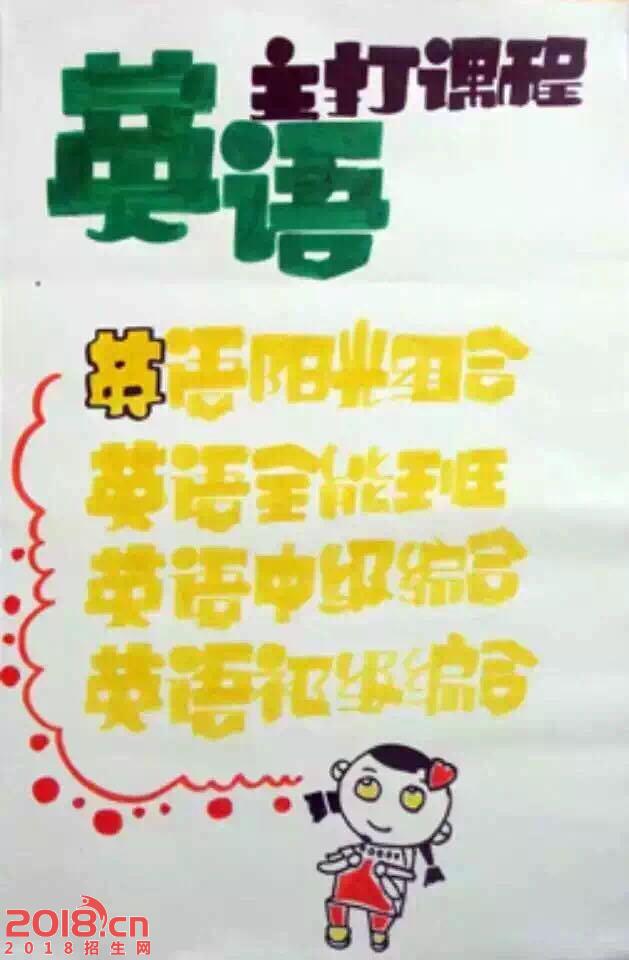 主打课程
英语
英语阳光组合
英语全能班
英语中级编合
英语初级编合
2018.cn
2018招生网